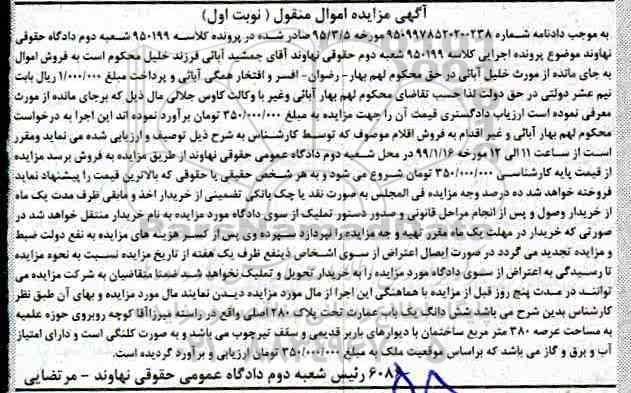 آگهی مزایده اموال منقول ( نوبت اول)
به موجب دادنامه شماره ۹۵۰۹۹۷۸۵۲۰۲۰۰۲۳۸ مورخه ۹۵/۳/۵ صادر شده در پرونده کلاسه ۹۵۰۱۹۹ شعبه دوم دادگاه حقوقی
نهاوند موضوع پرونده اجرایی کلاسه ۹۵۰۱۹۹ شعبه دوم حقوقی نهاوند آقای جمشید آبائی فرزند خلیل محکوم است به فروش اموال
به جای مانده از مورث خلیل آبائی در حق محکوم لهم بهار- رضوان- افسر و افتخار همگی آبائی و پرداخت مبلغ ۱/۰۰۰/۰۰۰ ریال بابت
نیم عشر دولتی در حق دولت لذا حسب تقاضای محکوم لهم بهار آبائی وغیر با وکالت کاوس جلالی مال ذیل که برجای مانده از مورث
معرفی نموده است ارزیاب دادگستری قیمت آن را جهت مزایده به مبلغ ۳۵۰/۰۰۰/۰۰۰ تومان برآورد نموده اند این اجرا به درخواست
محکوم لهم بهار آبائی و غیر اقدام به فروش اقلام موصوف که توسط کارشناس به شرح ذیل توصیف و ارزیابی شده می نماید ومقرر
است از ساعت ۱۱ الی ۱۲ مورخه ۹۹/۱/۱۶ در محل شعبه دوم دادگاه عمومی حقوقی نهاوند از طریق مزایده به فروش برسد مزایده
از قیمت پایه کارشناسی ۳۵۰/۰۰۰/۰۰۰ تومان شروع می شود و به هر شخص حقیقی یا حقوقی که بالاترین قیمت را پیشنهاد نماید
فروخته خواهد شد ده درصد وجه مزایده فی المجلس به صورت نقد یا چک بانکی تضمینی از خریدار اخذ و مابقی ظرف مدت یک ماه
از خریدار وصول و پس از انجام مراحل قانونی و صدور دستور تملیک از سوی دادگاه مورد مزایده به نام خریدار منتقل خواهد شد در
صورتی که خریدار در مهلت یک ماه مقرر تهیه و جه مزایده را نپردازد سپرده وی پس از کسر هزینه های مزایده به نفع دولت ضبط
و مزایده تجدید می گردد در صورت ایصال اعتراض از سوی اشخاص ذینفع ظرف یک هفته از تاریخ مزایده نسبت به نحوه مزایده
تا رسیدگی به اعتراض از سوی دادگاه مورد مزایده را به خریدار تحویل و تملیک نخواهد شد ضمنا متقاضیان به شرکت مزایده می
توانند در مدت پنج روز قبل از مزایده با هماهنگی این اجرا از مال مورد مزایده دیدن نمایند مال مورد مزایده و بهای آن طبق نظر
کارشناس بدین شرح می باشد شش دانگ یک باب عمارت تحت پلاک ۲۸۰ اصلی واقع در راسته میرزاآقا کوچه روبروی حوزه علمیه
به مساحت عرصه ۳۸۰ متر مربع ساختمان با دیوارهای باربر قدیمی و سقف تیرچوب می باشد و به صورت کلنگی است و دارای امتیاز
آب و برق و گاز می باشد که براساس موقعیت ملک به مبلغ ۳۵۰/۰۰۰/۰۰۰ تومان ارزیابی و بر آورد گردیده است.
۶۰۸ رئیس شعبه دوم دادگاه عمومی حقوقی نهاوند - مرتضایی